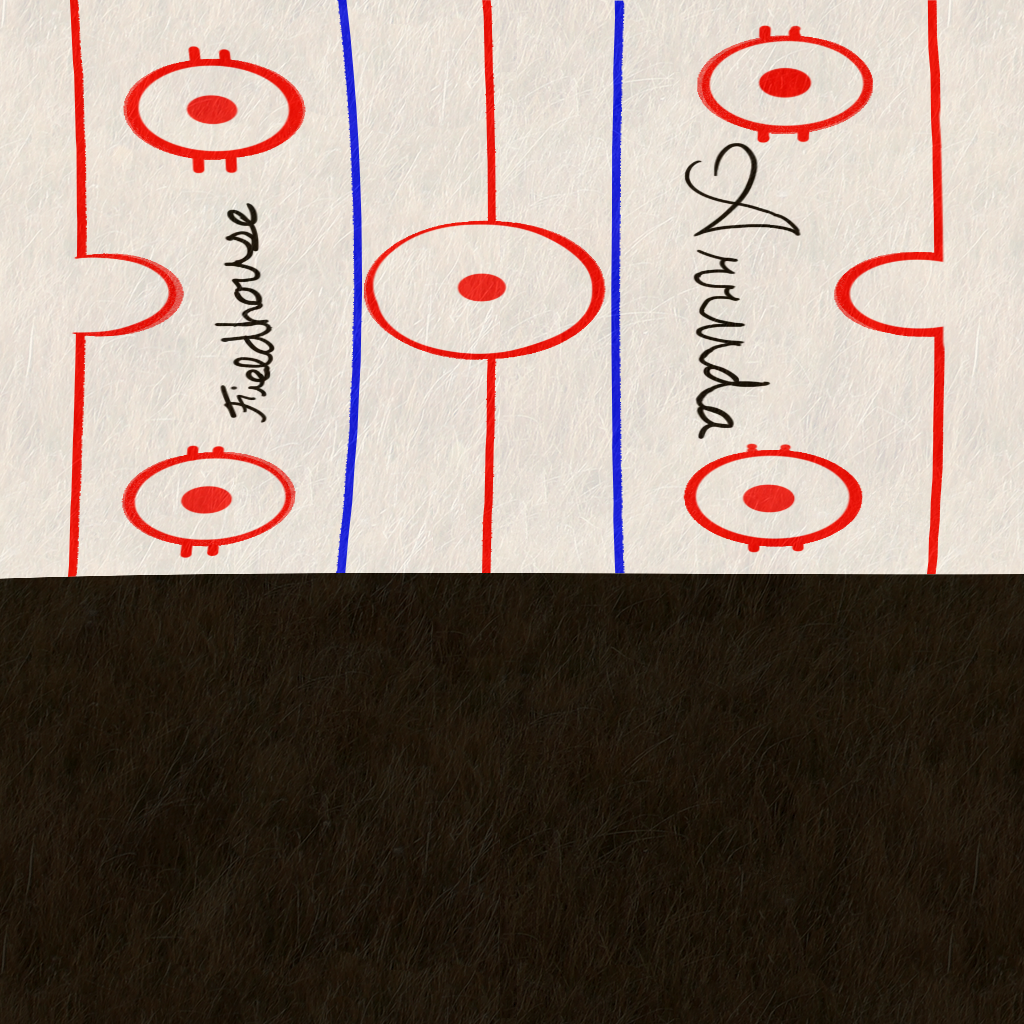 Fieldhouse
Arruda